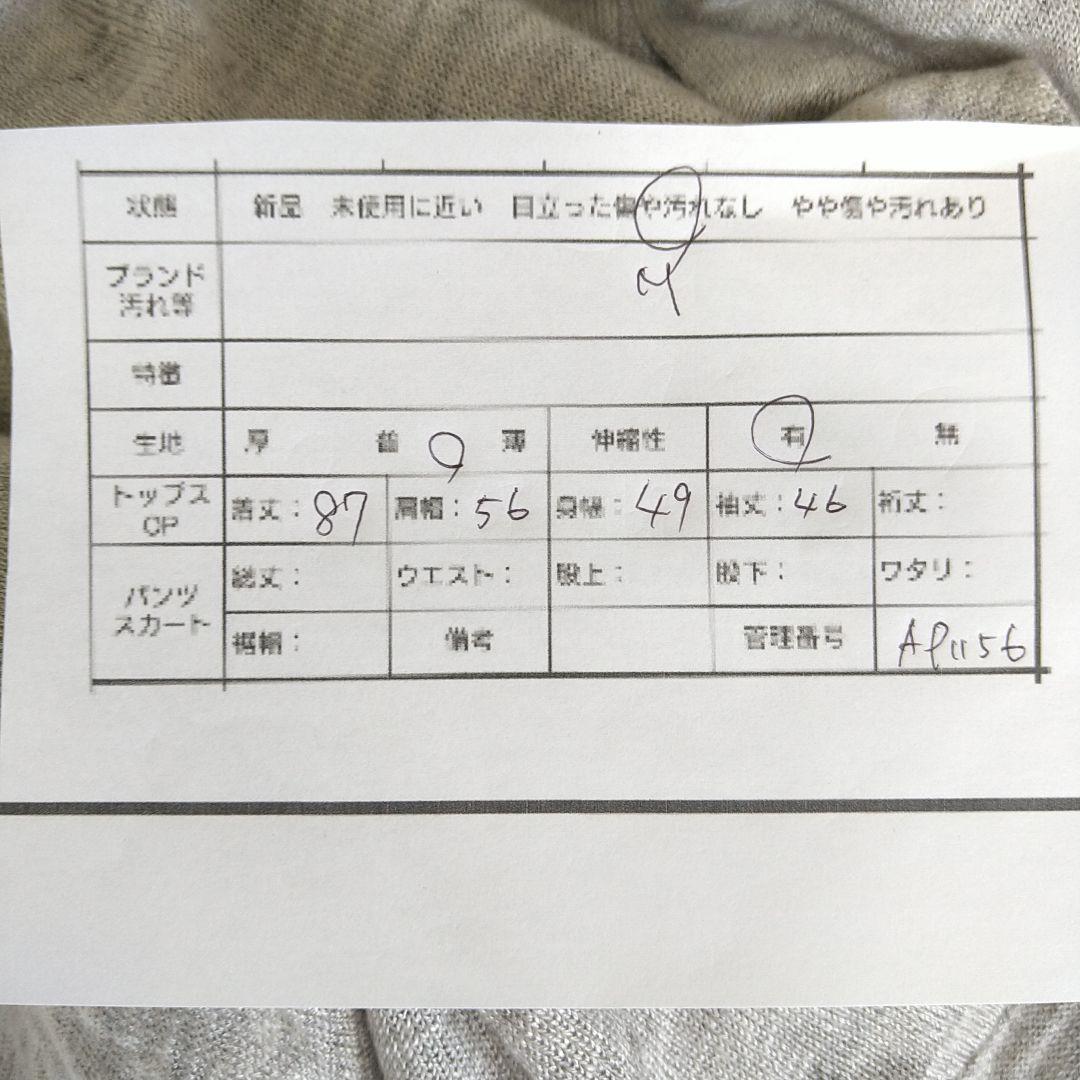 状態 新品 未使用に近い 目立った傷や汚れなし やや傷や汚れあり
ブランド
汚れ等
特徴
生地 厚 普 薄 伸縮性 有 無
トップス
OP
着丈：87 肩幅：56 身幅：49 袖丈：46 裄丈：
パンツ
スカート
総丈： ウエスト： 股上： 股下： ワタリ：
裾幅： 備考 管理番号 AP1156